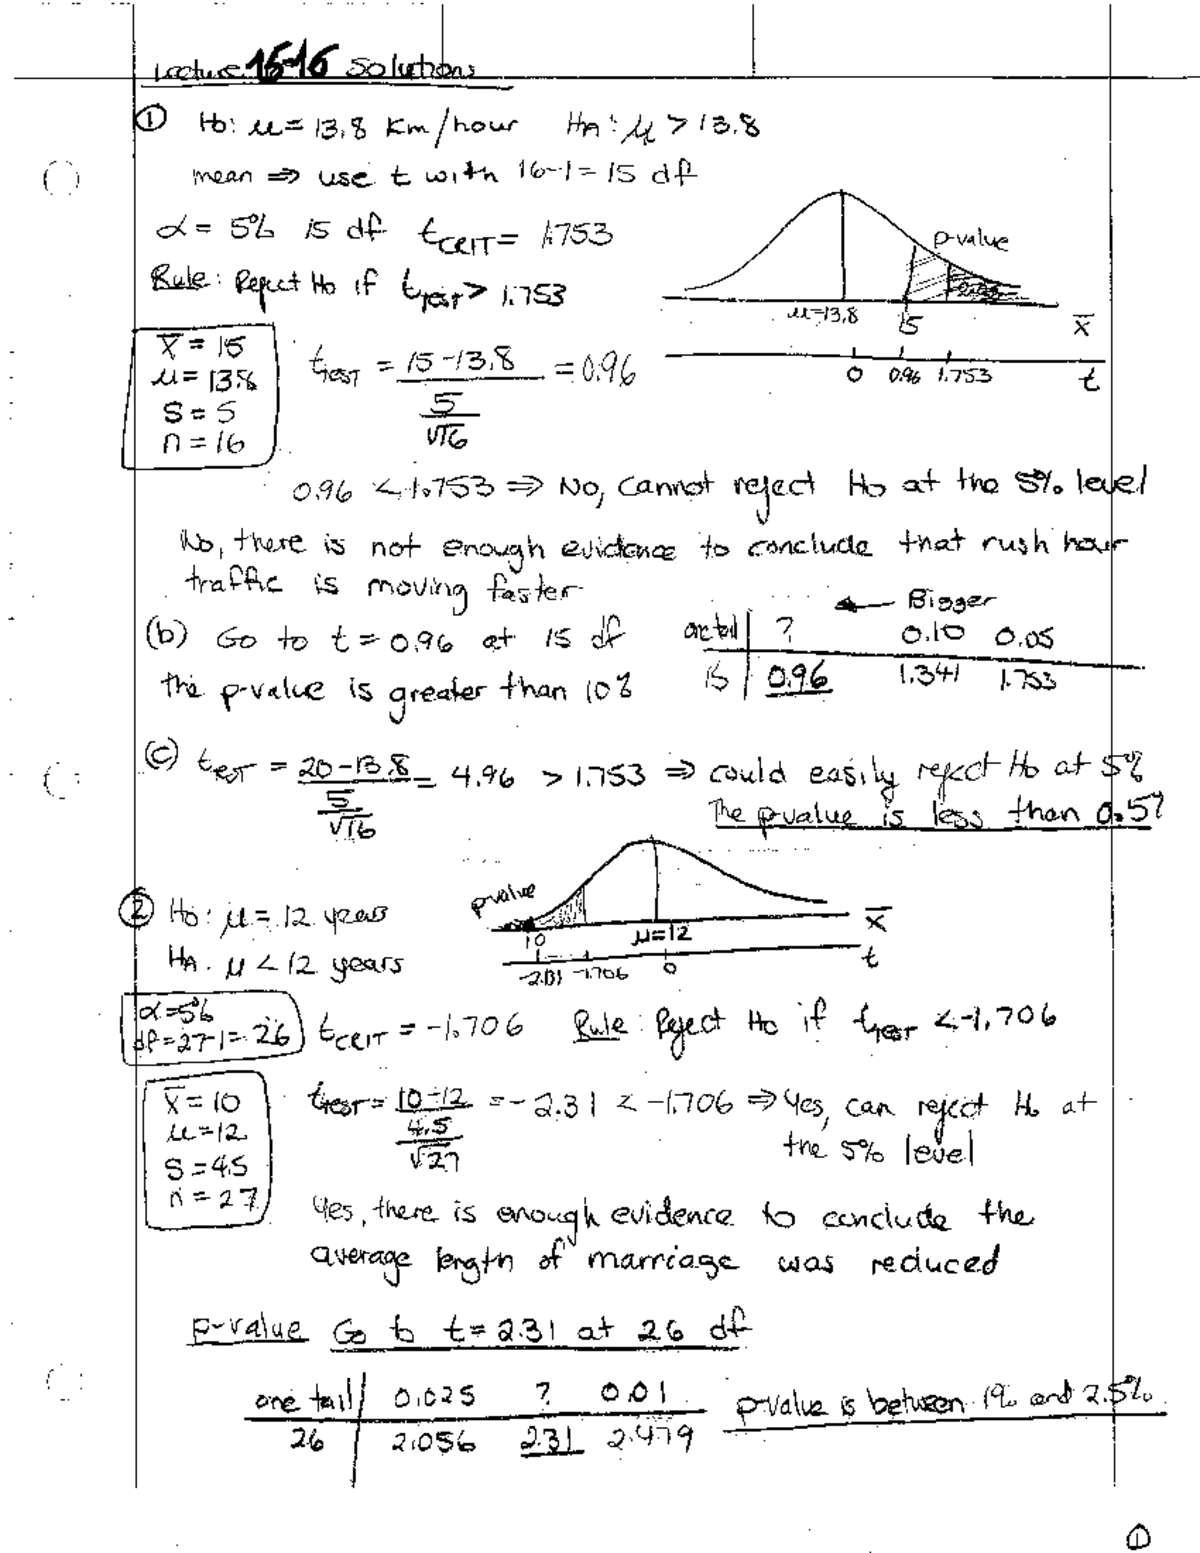 Lecture 15-16 Solutions
① Ho: μ = 13.8 Km/hour HA: μ > 13.8
mean ⇒ use t with 16-1 = 15 df
α = 5% 15 df tCRIT = 1.753
Rule: Reject Ho if tTEST > 1.753
p-value
μ=13.8 15 x̄
0 0.96 1.753 t
x̄ = 15
μ = 13.8
S = 5
n = 16
tTEST = 15-13.8 = 0.96
5
√16
0.96 < 1.753 ⇒ No, cannot reject Ho at the 5% level
No, there is not enough evidence to conclude that rush hour
traffic is moving faster
(b) Go to t = 0.96 at 15 df
the p-value is greater than 10%
← Bigger
one tail | ? 0.10 0.05
15 | 0.96 1.341 1.753
(c) tTEST = 20-13.8 = 4.96 > 1.753 ⇒ could easily reject Ho at 5%
5
√16
The p-value is less than 0.5%
② Ho: μ = 12 years
HA: μ < 12 years
p-value
10 μ=12 x̄
-2.31 -1.706 0 t
α=5%
df=27-1= 26
tCRIT = -1.706 Rule: Reject Ho if tTEST < -1.706
x̄ = 10
μ = 12
S = 4.5
n = 27
tTEST = 10-12 = -2.31 < -1.706 ⇒ Yes, can reject Ho at
4.5
√27
the 5% level
Yes, there is enough evidence to conclude the
average length of marriage was reduced
p-value Go to t = 2.31 at 26 df
one tail | 0.025 ? 0.01
26 | 2.056 2.31 2.479
p-value is between 1% and 2.5%
①